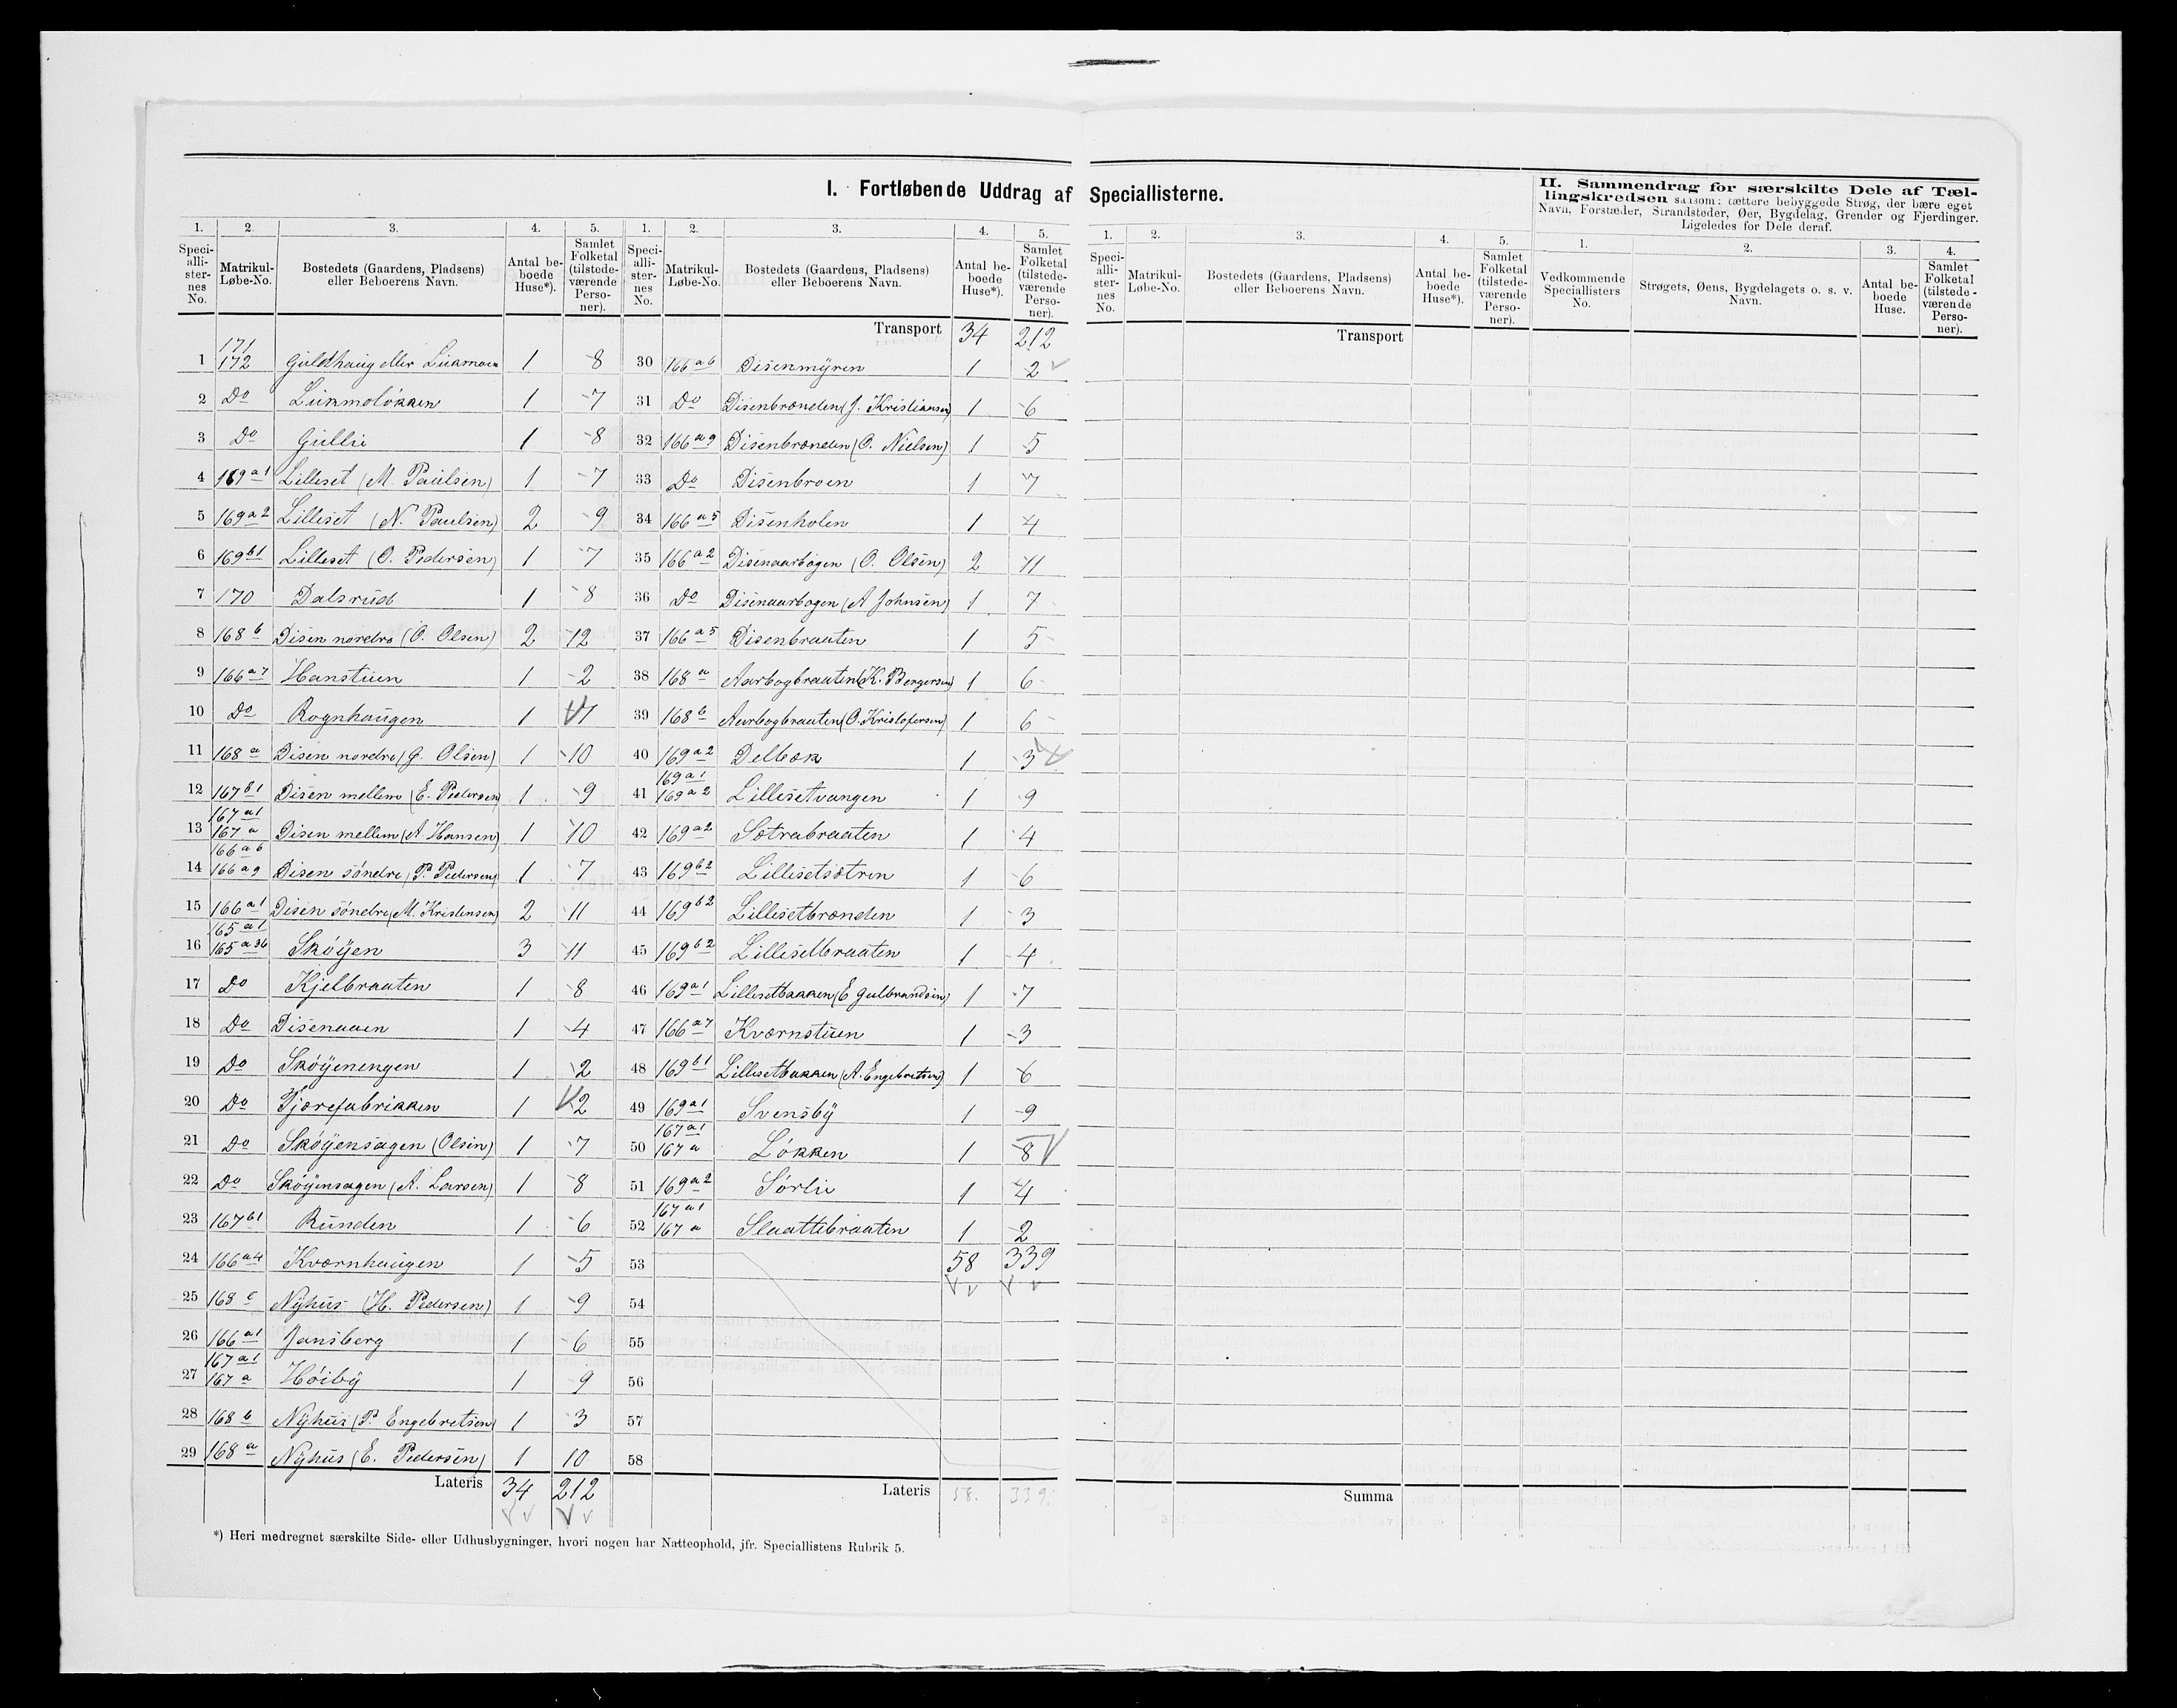 I. Fortløbende Uddrag af Speciallisterne.
1. 2. 3. 4. 5.
Speciallisternes No. Matrikul-Løbe-No. Bostedets (Gaardens, Pladsens) eller Beboerens Navn. Antal beboede Huse*). Samlet Folketal (tilstedeværende Personer).
171
1 172 Guldthaug eller Liermoen 1 8
2 Do 1 7
3 Do Gullii 1 8
4 169 a1 Lilleset (M. Paulsen) 1 7
5 169 a2 Lilleset (N. Paulsen) 2 9
6 169 b1 Lilleset (O. Pedersen) 1 7
7 170 Dalsrud 1 8
8 168 b Disen nordre (O. Olsen) 2 12
9 166 a7 Hanstuen 1 2
10 Do Rognhaugen 1 7
11 168 a Disen nordre (G. Olsen) 1 10
12 167 b1 Disen mellem (E. Pedersen) 1 9
167 a1
13 167 a Disen mellem (A. Hansen) 1 10
166 a6
14 166 a9 Disen söndre (P. Pedersen) 1 7
15 166 a1 Disen söndre (M. Kristensen) 2 11
165 a1
16 165 a36 Sköyen 3 11
17 Do Kjelbraaten 1 8
18 Do Disenaaen 1 4
19 Do Sköyenengen 1 2
20 Do Tjærefabrikken 1 2
21 Do Sköyensagen (Olsen) 1 7
22 Do Sköyensagen (A. Larsen) 1 8
23 167 b1 Runden 1 6
24 166 a4 Kværnhaugen 1 5
25 168 c Nyhus (H. Pedersen) 1 9
26 166 a1 Jansberg 1 6
167 a1
27 167 a Höiby 1 9
28 168 b Nyhus (P. Engebretsen) 1 3
29 168 a Nyhus (E. Pedersen) 1 10
Lateris 34 212
1. 2. 3. 4. 5.
Speciallisternes No. Matrikul-Løbe-No. Bostedets (Gaardens, Pladsens) eller Beboerens Navn. Antal beboede Huse*). Samlet Folketal (tilstedeværende Personer).
Transport 34 212
30 166 a6 Disenmyren 1 2
31 Do Disenbrænden (J. Kristiansen) 1 6
32 166 a9 Disenbrænden (O. Nielsen) 1 5
33 Do Disenbroen 1 7
34 166 a5 Disenholen 1 4
35 166 a2 Disenaarbogen (O. Olsen) 2 11
36 Do Disenaarbogen (A Johnsen) 1 7
37 166 a5 Disenbraaten 1 5
38 168 a Aarbogbraaten (K. Bergersen) 1 6
39 168 b Aarbogbraaten (O. Kristofersen) 1 6
40 169 a2 Delbæk 1 3
169 a1
41 169 a2 Lillesetvangen 1 9
42 169 a2 Sætrabraaten 1 4
43 169 b2 Lillesetsætren 1 6
44 169 b2 Lillesetbrænden 1 3
45 169 b2 Lillesetbraaten 1 4
46 169 a1 Lillesetbakken (E Gulbrandsen) 1 7
47 166 a7 Kværnstuen 1 3
48 169 b1 Lillesetbakken (A. Engebretsen) 1 6
49 169 a1 Svensby 1 9
167 a1
50 167 a Lökken 1 8
51 169 a2 Sörlie 1 4
167 a1
52 167 a Slaattebraaten 1 2
53 58 339
54
55
56
57
58
Lateris 58. 339.
*) Heri medregnet særskilte Side- eller Udhusbygninger, hvori nogen har Natteophold, jfr. Speciallistens Rubrik 5.
1. 2. 3. 4. 5.
Speciallisternes No. Matrikul-Løbe-No. Bostedets (Gaardens, Pladsens) eller Beboerens Navn. Antal beboede Huse*). Samlet Folketal (tilstedeværende Personer).
Transport
Summa
II. Sammendrag for særskilte Dele af Tællingskredsen saasom: tættere bebyggede Strøg, der bære eget
Navn, Forstæder, Strandsteder, Øer, Bygdelag, Grender og Fjerdinger.
Ligeledes for Dele deraf.
1. 2. 3. 4.
Vedkommende Speciallisters No. Strøgets, Øens, Bygdelagets o. s. v. Navn. Antal beboede Huse. Samlet Folketal (tilstedeværende Personer).